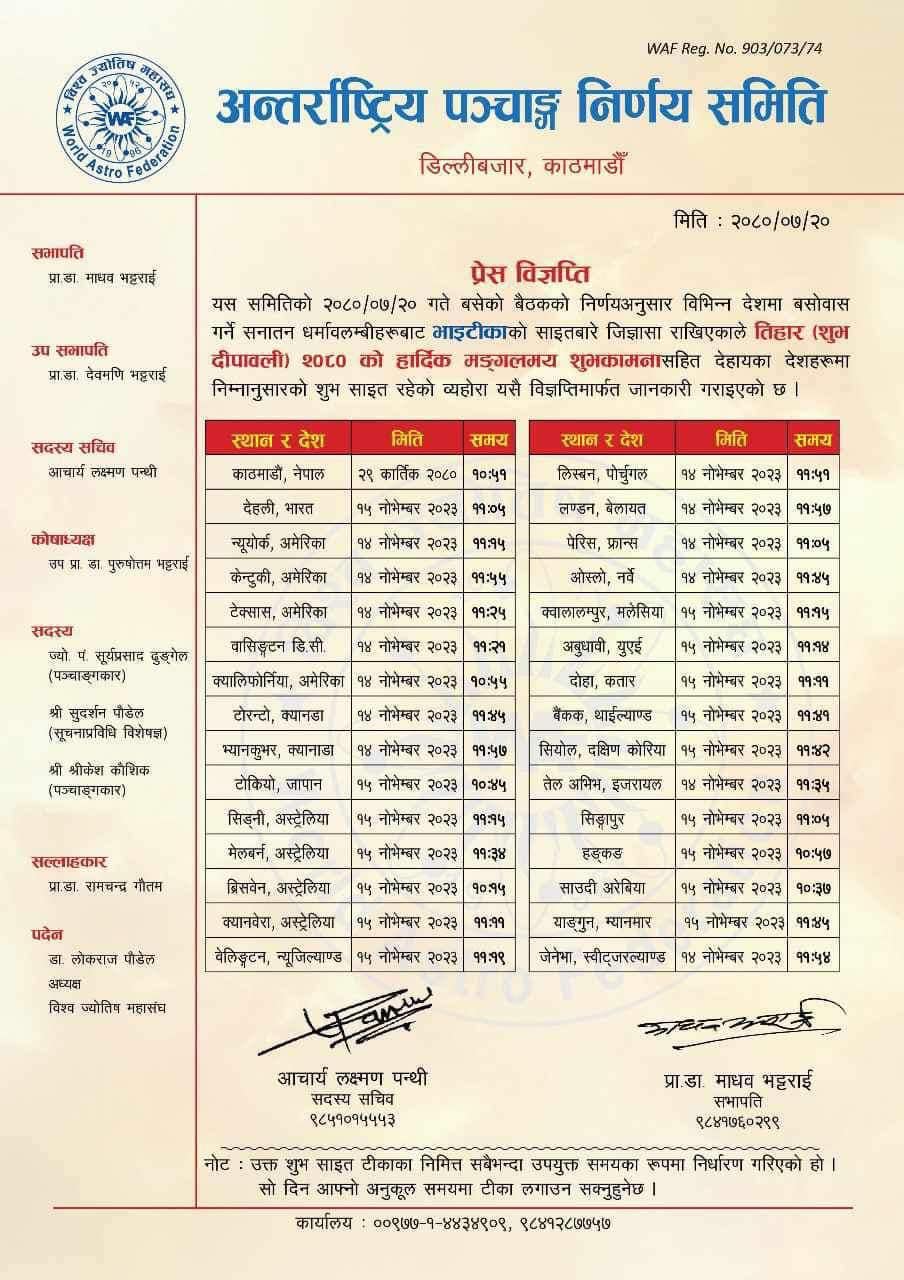 WAF Reg. No. 903/073/74
विश्व ज्योतिष महासंघ
२०५२
WAF
1996
World Astro Federation
अन्तर्राष्ट्रिय पञ्चाङ्ग निर्णय समिति
डिल्लीबजार, काठमाडौँ
मिति : २०८०/०७/२०
सभापति
प्रा.डा. माधव भट्टराई
उप सभापति
प्रा.डा. देवमणि भट्टराई
सदस्य सचिव
आचार्य लक्ष्मण पन्थी
कोषाध्यक्ष
उप प्रा. डा. पुरुषोत्तम भट्टराई
सदस्य
ज्यो. पं. सूर्यप्रसाद ढुङ्गेल
(पञ्चाङ्गकार)
श्री सुदर्शन पौडेल
(सूचनाप्रविधि विशेषज्ञ)
श्री श्रीकेश कौशिक
(पञ्चाङ्गकार)
सल्लाहकार
प्रा.डा. रामचन्द्र गौतम
पदेन
डा. लोकराज पौडेल
अध्यक्ष
विश्व ज्योतिष महासंघ
प्रेस विज्ञप्ति
यस समितिको २०८०/०७/२० गते बसेको बैठकको निर्णयअनुसार विभिन्न देशमा बसोवास
गर्ने सनातन धर्मावलम्बीहरूबाट भाइटीकाको साइतबारे जिज्ञासा राखिएकाले तिहार (शुभ
दीपावली) २०८० को हार्दिक मङ्गलमय शुभकामनासहित देहायका देशहरूमा
निम्नानुसारको शुभ साइत रहेको व्यहोरा यसै विज्ञप्तिमार्फत जानकारी गराइएको छ ।
स्थान र देश मिति समय
काठमाडौं, नेपाल २९ कार्तिक २०८० १०:५१
देहली, भारत १५ नोभेम्बर २०२३ ११:०५
न्यूयोर्क, अमेरिका १४ नोभेम्बर २०२३ ११:१५
केन्टुकी, अमेरिका १४ नोभेम्बर २०२३ ११:५५
टेक्सास, अमेरिका १४ नोभेम्बर २०२३ ११:२५
वासिङ्टन डि.सी. १४ नोभेम्बर २०२३ ११:२१
क्यालिफोर्निया, अमेरिका १४ नोभेम्बर २०२३ १०:५५
टोरन्टो, क्यानडा १४ नोभेम्बर २०२३ ११:४५
भ्यानकुभर, क्यानाडा १४ नोभेम्बर २०२३ ११:५७
टोकियो, जापान १५ नोभेम्बर २०२३ १०:४५
सिड्नी, अस्ट्रेलिया १५ नोभेम्बर २०२३ ११:१५
मेलबर्न, अस्ट्रेलिया १५ नोभेम्बर २०२३ ११:३४
ब्रिसवेन, अस्ट्रेलिया १५ नोभेम्बर २०२३ १०:१५
क्यानवेरा, अस्ट्रेलिया १५ नोभेम्बर २०२३ ११:११
वेलिङ्टन, न्यूजिल्याण्ड १५ नोभेम्बर २०२३ ११:१९
स्थान र देश मिति समय
लिस्बन, पोर्चुगल १४ नोभेम्बर २०२३ ११:५१
लण्डन, बेलायत १४ नोभेम्बर २०२३ ११:५७
पेरिस, फ्रान्स १४ नोभेम्बर २०२३ ११:०५
ओस्लो, नर्वे १४ नोभेम्बर २०२३ ११:४५
क्वालालम्पुर, मलेसिया १५ नोभेम्बर २०२३ ११:१५
अबुधावी, युएई १५ नोभेम्बर २०२३ ११:१४
दोहा, कतार १५ नोभेम्बर २०२३ ११:११
बैंकक, थाईल्याण्ड १५ नोभेम्बर २०२३ ११:४१
सियोल, दक्षिण कोरिया १५ नोभेम्बर २०२३ ११:४२
तेल अभिभ, इजरायल १४ नोभेम्बर २०२३ ११:३५
सिङ्गापुर १५ नोभेम्बर २०२३ ११:०५
हङ्कङ १५ नोभेम्बर २०२३ १०:५७
साउदी अरेबिया १५ नोभेम्बर २०२३ १०:३७
याङ्गुन, म्यानमार १५ नोभेम्बर २०२३ ११:४५
जेनेभा, स्वीट्जरल्याण्ड १४ नोभेम्बर २०२३ ११:५४
आचार्य लक्ष्मण पन्थी
सदस्य सचिव
९८५१०१५५५३
प्रा.डा. माधव भट्टराई
सभापति
९८४१७६०२९९
नोट : उक्त शुभ साइत टीकाका निमित्त सबैभन्दा उपयुक्त समयका रूपमा निर्धारण गरिएको हो ।
सो दिन आफ्नो अनुकूल समयमा टीका लगाउन सक्नुहुनेछ ।
कार्यालय : ००९७७-१-४४३४९०९, ९८४१२८७७५७